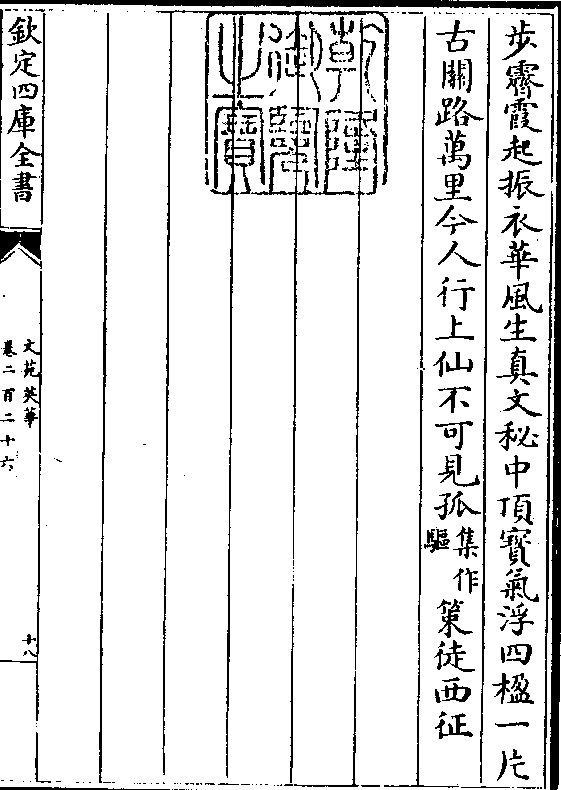 步霽霞起振衣華風生真文秘中頂寶氣浮四楹一片
古關路萬里今人行上仙不可見孤集作驅策徒西征
乾隆御覽之寶
欽定四庫全書
文苑英華
卷二百二十六
十八